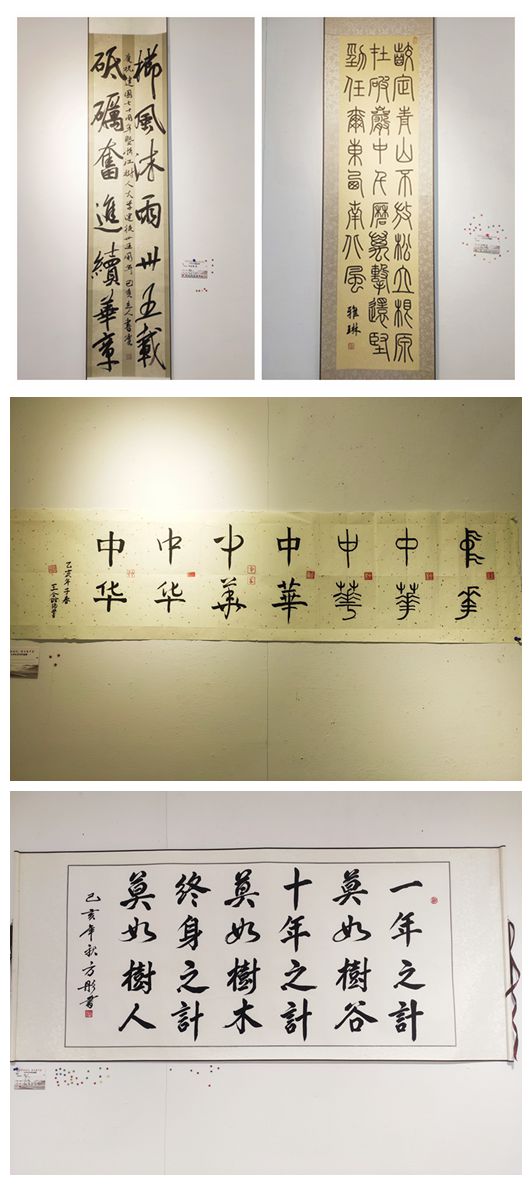 櫛風沐雨卅五載
慶祝建國七十周年暨浙江樹人大学建校卅五周年 己亥
砥礪奮進續華章
齩定青山不放松立根原
在破巖中千磨萬擊還堅
勁任爾東西南北風
雅琳
中華
中華
中華
中華
中華
中华
中华
一年之計
莫如樹谷
十年之計
莫如樹木
終身之計
莫如樹人
己亥年秋方彤書